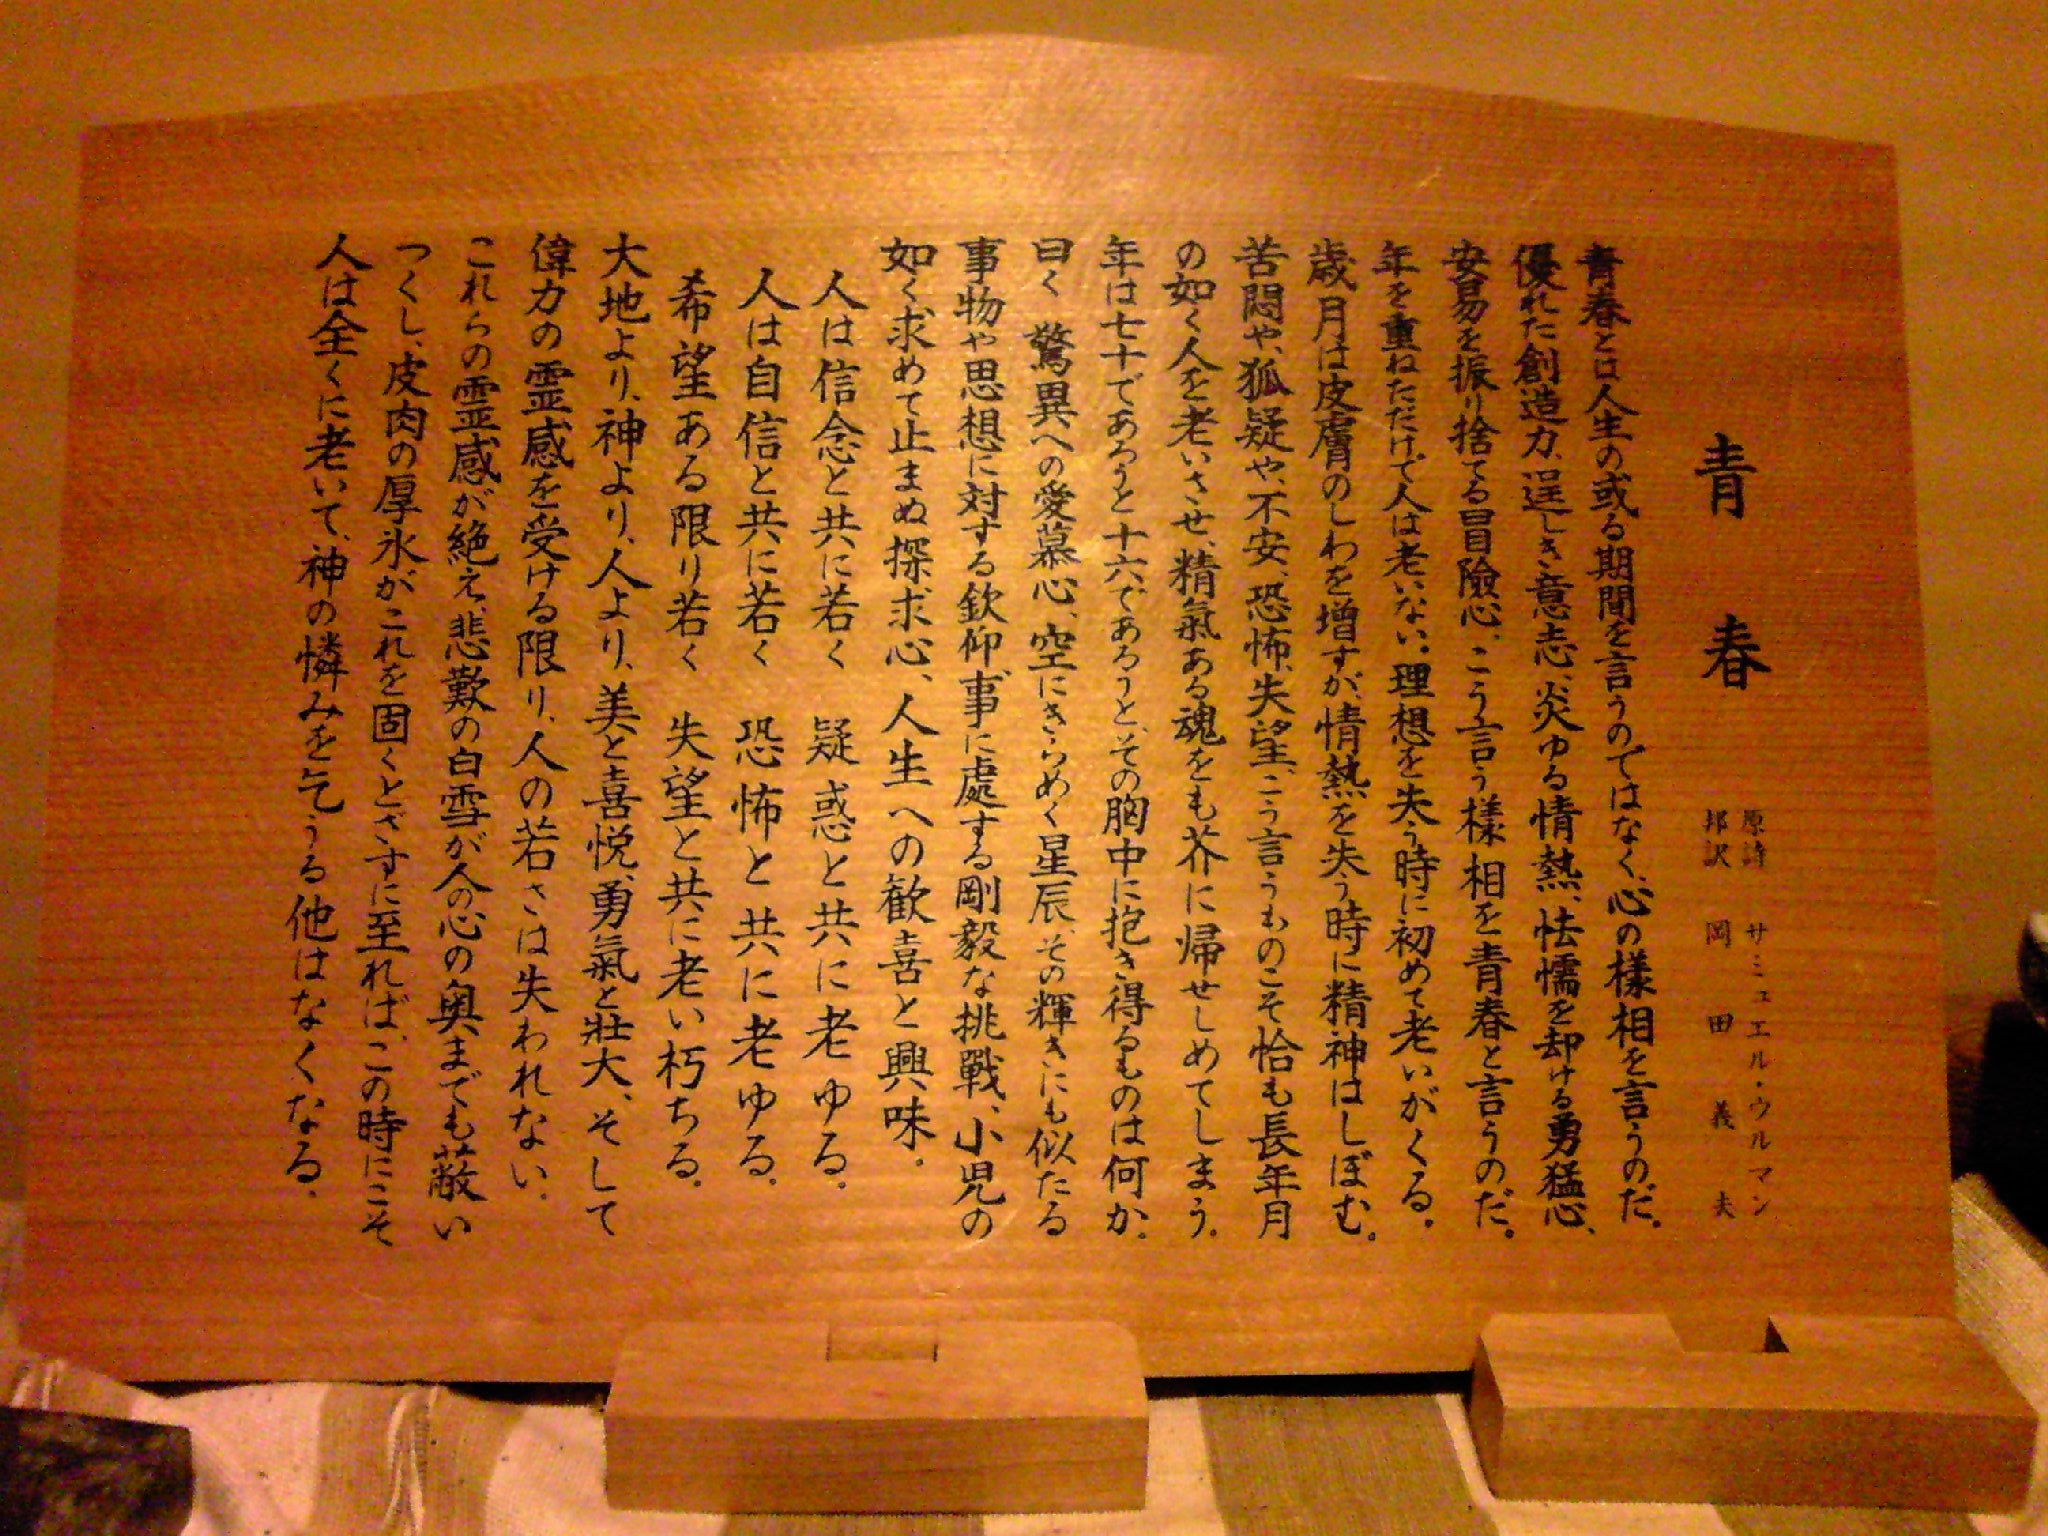 青春
原詩 サミュエル・ウルマン
邦訳 岡田義夫
青春とは人生の或る期間を言うのではなく、心の様相を言うのだ。
優れた創造力、逞しき意志、炎ゆる情熱、怯懦を却ける勇猛心、
安易を振り捨てる冒険心、こう言う様相を青春と言うのだ。
年を重ねただけで人は老いない。理想を失う時に初めて老いがくる。
歳月は皮膚のしわを増すが、情熱を失う時に精神はしぼむ。
苦悶や、狐疑や、不安、恐怖、失望、こう言うものこそ恰も長年月
の如く人を老いさせ、精氣ある魂をも芥に帰せしめてしまう。
年は七十であろうと十六であろうと、その胸中に抱き得るものは何か。
曰く 驚異への愛慕心、空にきらめく星辰、その輝きにも似たる
事物や思想に対する欽仰、事に處する剛毅な挑戰、小児の
如く求めて止まぬ探求心、人生への歓喜と興味。
人は信念と共に若く 疑惑と共に老ゆる。
人は自信と共に若く 恐怖と共に老ゆる。
希望ある限り若く 失望と共に老い朽ちる。
大地より、神より、人より、美と喜悦、勇氣と壮大、そして
偉力の霊感を受ける限り、人の若さは失われない。
これらの霊感が絶え、悲歎の白雪が人の心の奥までも蔽い
つくし、皮肉の厚氷がこれを固くとざすに至れば、この時にこそ
人は全くに老いて、神の憐みを乞うる他はなくなる。